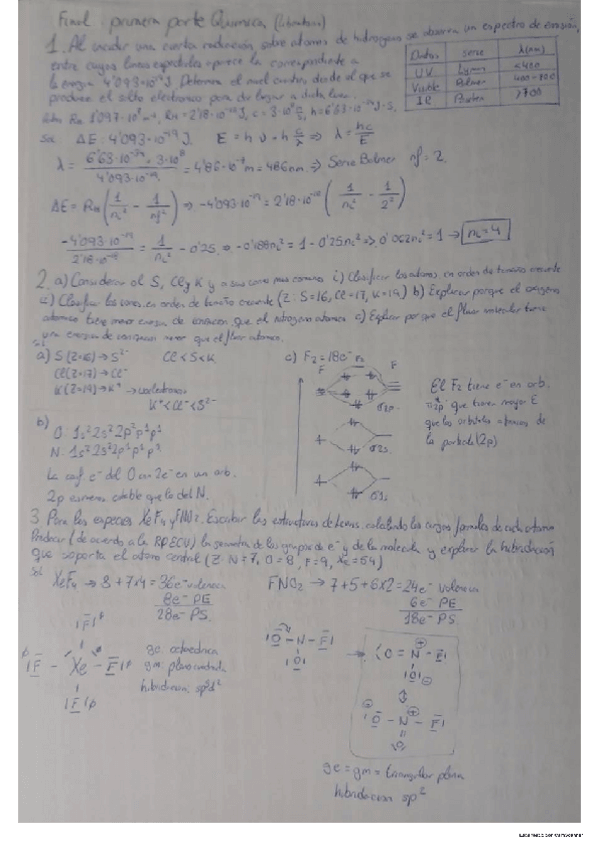 Final: primera parte Química (Laboratorio)
1. Al incidir una cierta radiación sobre átomos de hidrógeno se observa un espectro de emisión,
entre cuyas líneas espectrales aparece la correspondiente a
la energía 4'093·10⁻¹⁹ J. Determina el nivel cuántico desde el que se
produce el salto electrónico para dar lugar a dicha línea.
R∞ 1'097·10⁷ m⁻¹, RH = 2'18·10⁻¹⁸ J, c = 3·10⁸ m/s, h = 6'63·10⁻³⁴ J·s.
Datos serie λ(nm)
UV Lyman <400
Visible Balmer 400-700
IR Paschen >700
Sol ΔE = 4'093·10⁻¹⁹ J. E = h·ν = h c/λ ⇒ λ = hc/E
λ = 6'63·10⁻³⁴·3·10⁸ / 4'093·10⁻¹⁹ = 4'86·10⁻⁷ m = 486 nm. ⇒ Serie Balmer nf = 2.
ΔE = RH (1/ni² - 1/nf²) ⇒ -4'093·10⁻¹⁹ = 2'18·10⁻¹⁸ (1/ni² - 1/2²)
-4'093·10⁻¹⁹ / 2'18·10⁻¹⁸ = 1/ni² - 0'25 ⇒ -0'188ni² = 1 - 0'25ni² ⇒ 0'062ni² = 1 → ni = 4
2. a) Considerar el S, Cl y K y sus iones más comunes i) Clasificar los átomos en orden de tamaño creciente
ii) Clasificar los iones en orden de tamaño creciente (Z: S=16, Cl=17, K=19) b) Explicar porque el oxígeno
atómico tiene menor energía de ionización que el nitrógeno atómico c) Explicar por que el flúor molecular tiene
una energía de ionización menor que el flúor atómico.
Sol
a) S (Z=16) → S²⁻ Cl < S < K
Cl (Z=17) → Cl⁻
K (Z=19) → K⁺ → isoelectrónicos
K⁺ < Cl⁻ < S²⁻
b)
O: 1s² 2s² 2p² p¹ p¹
N: 1s² 2s² 2p¹ p¹ p¹
La conf. e⁻ del O con 2e⁻ en un orb.
2p es menos estable que la del N.
c) F₂ = 18e⁻
F F₂ F
σ2p
σ2s
σ1s
El F₂ tiene e⁻ en orb.
π*2p que tienen mayor E
que los orbitales atómicos de
la partida (2p)
3. Para las especies XeF₄ y FNO₂. Escribir las estructuras de Lewis, calculando las cargas formales de cada átomo
Predecir (de acuerdo a la RPECV) la geometría de los grupos de e⁻ y de la molécula y explicar la hibridación
que soporta el átomo central (Z: N=7, O=8, F=9, Xe=54)
Sol
XeF₄ → 8 + 7×4 = 36e⁻ valencia
8e⁻ PE
28e⁻ PS
F
F - Xe - F
F
ge: octaédrica
gm: plano cuadrada
hibridación: sp³d²
FNO₂ → 7 + 5 + 6×2 = 24e⁻ valencia
6e⁻ PE
18e⁻ PS
O - N - F
O
O = N - F
O
O - N - F
O
ge = gm = triangular plana
hibridación sp²